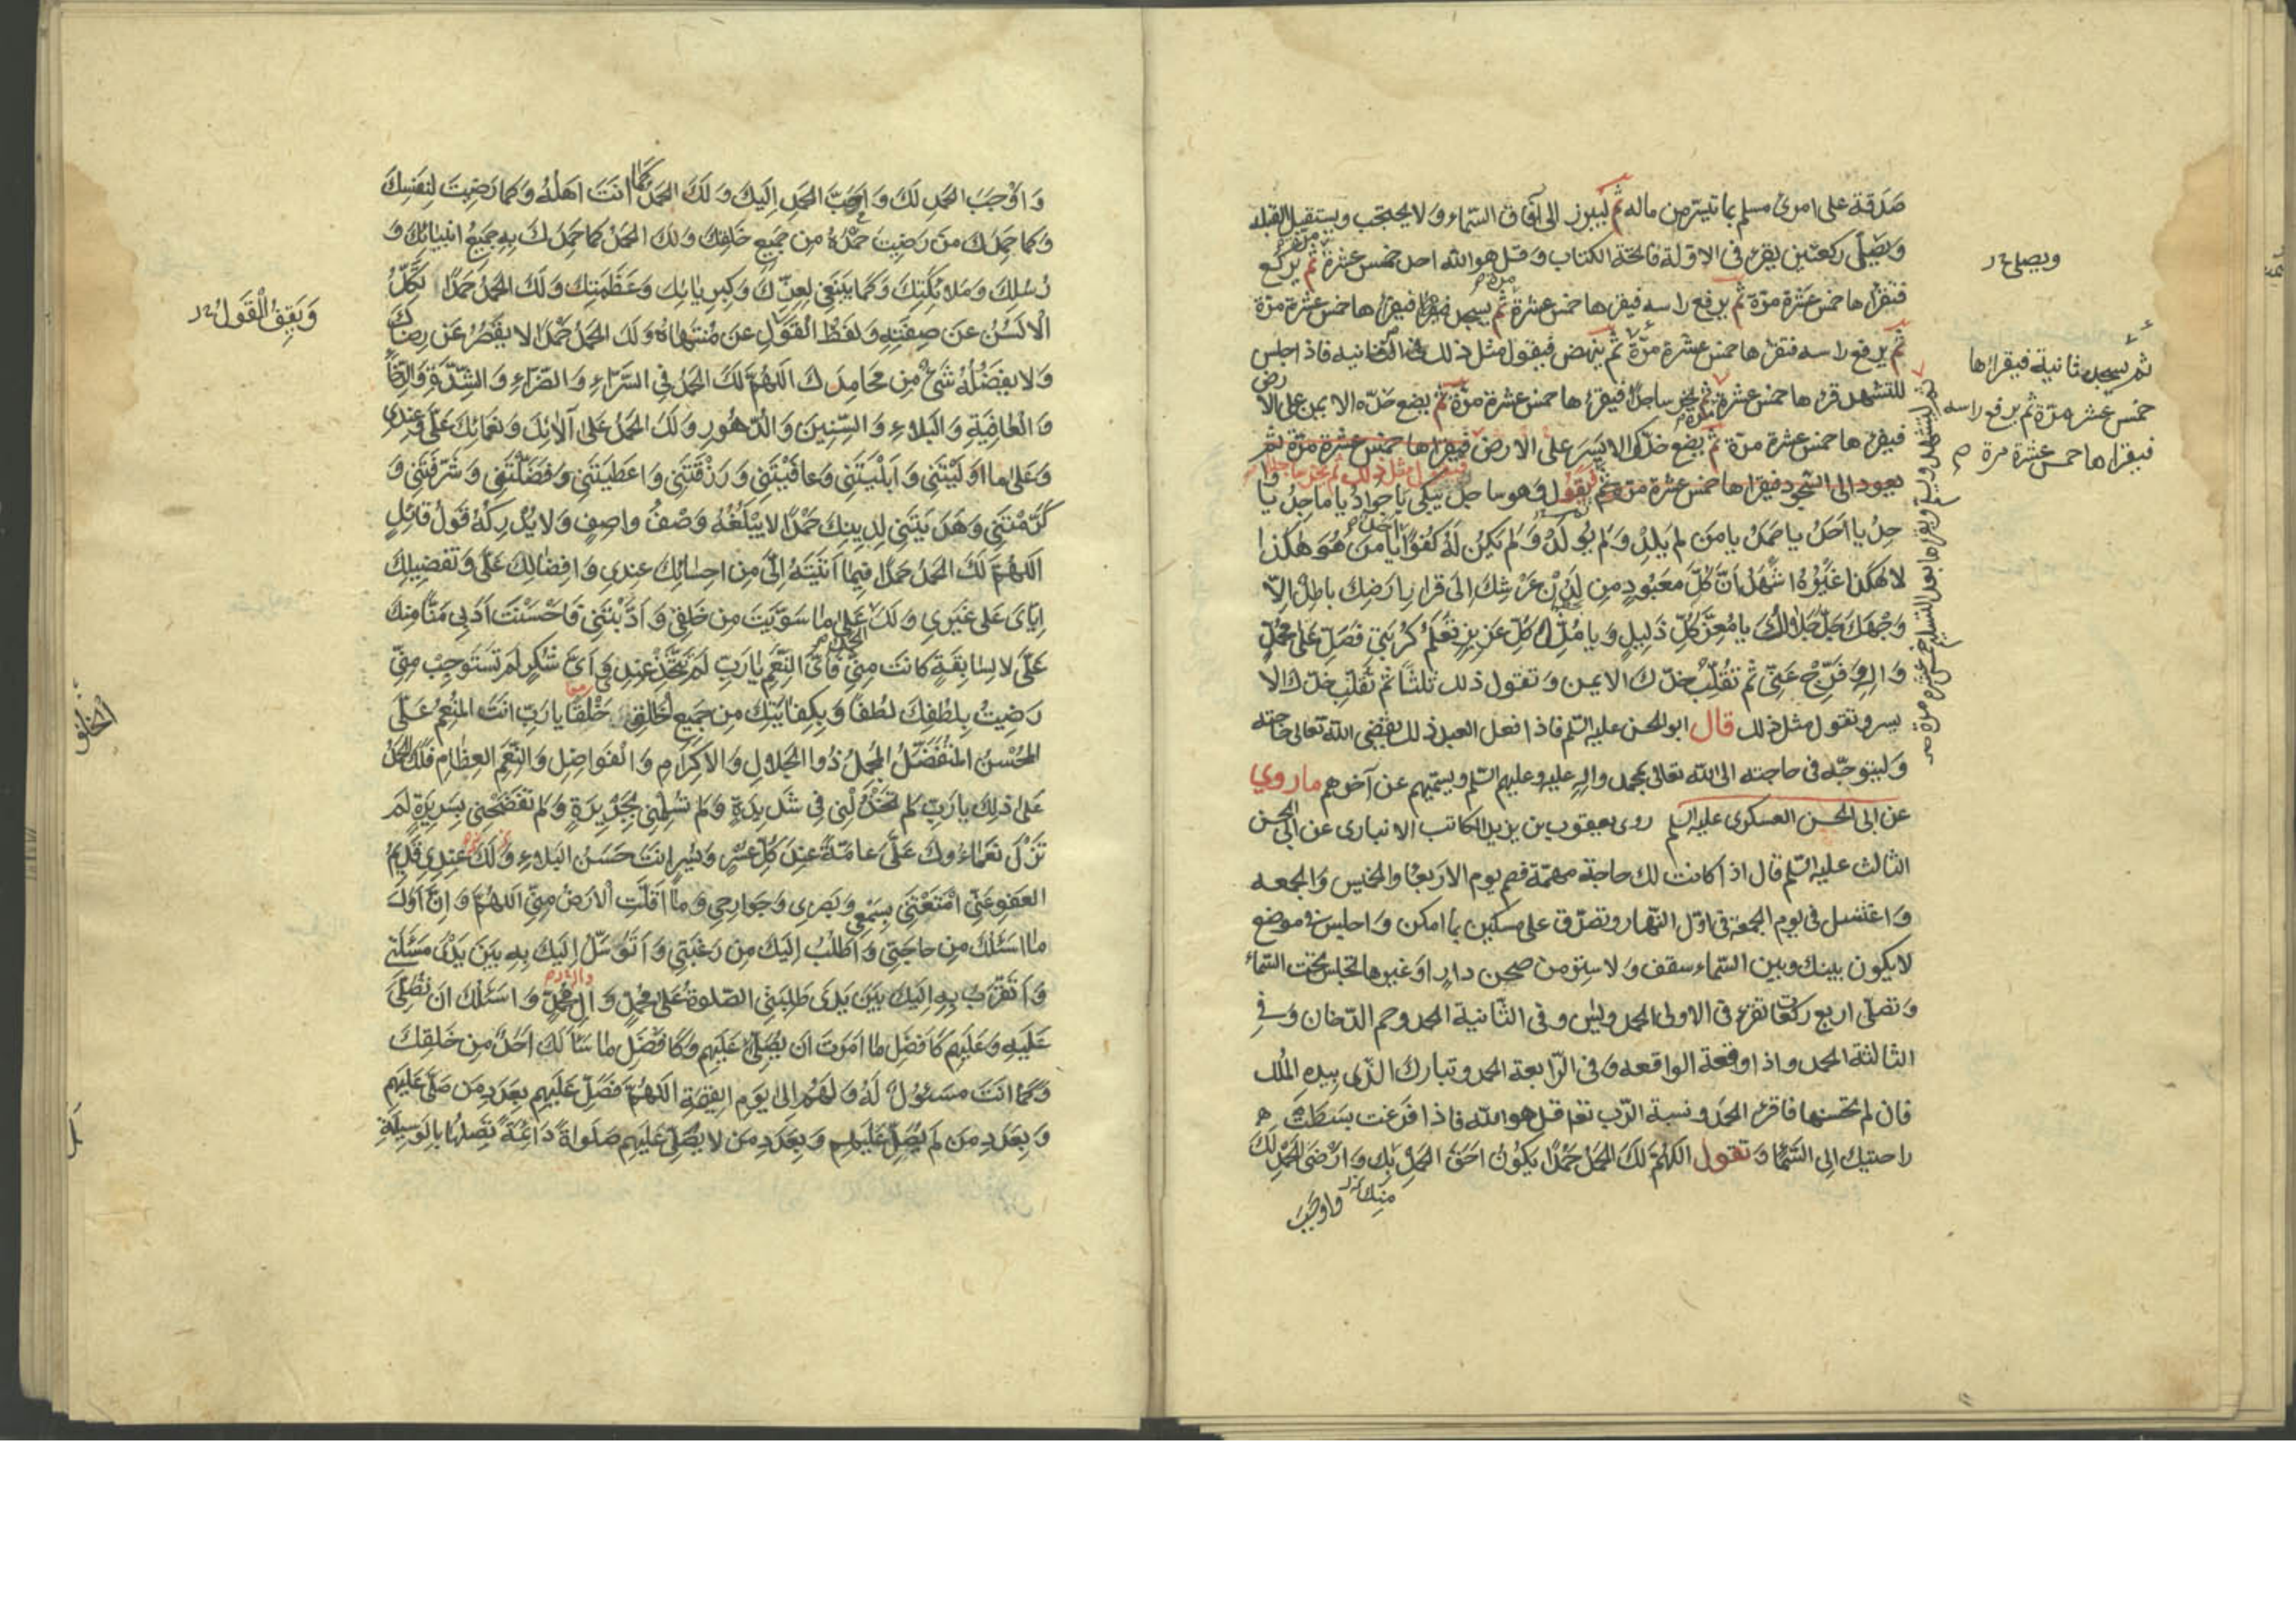 صَدَقة على امرئ مسلم بما تيسّر من ماله ثم ليبرز الى آفاق السّماء ولا يحتجب ويستقبل القبلة
وَيصَلّى ركعتين يقرء فى الاولة فاتحة الكتاب وقل هو الله احد خمس عشرة مرّة ثم يركع
فيقراها خمس عشرة مرّة ثم يرفع راسه فيقرءها خمس عشرة مرة ثم يسجد فيقراها خمس عشرة مرّة
ثم يرفع راسه فيقرءها خمس عشرة مرّة ثم ينهض فيقول مثل ذلك فى الثانيه فاذا جلس
للتشهد قرءها خمس عشرة ثم يخر ساجدا فيقرءها خمس عشرة مرّة ثم يضع خدّه الايمن على الارض
فيقرءها خمس عشرة مرّة ثم يضع خدّه الايسر على الارض فيقراها خمس عشرة مرّة ثم
يعود الى السّجود فيقراها خمس عشرة مرّة ثم يقول وهو ساجد يبكى يا جوادُ يا ماجِدُ يا وا
حِدُ يا اَحَدُ يا صَمَدُ يا مَن لَم يَلِدْ وَلَم يُولَدْ وَلَم يَكُن لَهُ كُفُوًا اَحَدٌ يا مَن هُوَ هٰكَذا
لا هٰكَذا غَيْرُهُ اَشْهَدُ اَنَّ كُلَّ مَعبُودٍ مِن لَدُنْ عَرْشِكَ اِلى قَرارِ اَرَضِكَ باطِلٌ اِلّا
وَجْهَكَ جَلَّ جَلالُكَ يا مُعِزَّ كُلِّ ذَليلٍ وَيا مُذِلَّ كُلِّ عَزيزٍ تَعْلَمُ كُرْبَتى فَصَلِّ عَلى مُحمّدٍ
وَالِهِ وَفَرِّجْ عَنّى ثم تقلّب خدّك الايمن وتقول ذلك ثلثًا ثم تقلب خدّك الا
يسر وتقول مثل ذلك قال ابو الحسن عليه السّلم فاذا فعل العبد ذلك يقضى الله تعالى حاجته
وَليتوجّه فى حاجته الى الله تعالى بمحمد واله عليه وعليهم السّلم ويسمّيهم عن آخرهم ما روي
عن ابى الحسن العسكرى عليه السلم روى يعقوب بن يزيد الكاتب الانبارى عن ابى الحسن
الثالث عليه السّلم قال اذا كانت لك حاجة مهمّة فصم يوم الاربعا والخميس والجمعه
وَاغتسل فى يوم الجمعة فى اوّل النّهار وتصدّق على مسكين بما امكن واجلس فى موضع
لا يكون بينك وبين السّماء سقف وَلا ستر من صحن دارٍ اوغيرها تجلس تحت السّماء
وَتصلّى اربع ركعات تقرء فى الاولى الحمد ويس وفى الثّانية الحمد وحم الدّخان وَفى
الثالثة الحمد واذا وقعت الواقعه وفى الرّابعة الحمد وتبارك الّذى بيده الملك
فان لم تحسنها فاقرء الحمد ونسبة الرّب تعا قل هو الله فاذا فرغت بسطت
راحتيك الى السّماء وتقول اَللّهُمَّ لَكَ الحَمْدُ حَمْدًا يَكُونُ اَحَقَّ الحَمْدِ بِكَ وَاَرْضَى الحَمْدِ لَكَ
وَاَوْجَبَ
ويصلى
ثم يسجد ثانية فيقراءها
خمس عشر مرّة ثم يرفع راسه
فيقراها خمس عشرة مرة
ثم ليتشهد ويسلم ويقراها بعد التسليم خمس عشرة مرة
وَاَوْجَبَ الحَمدِ لَكَ وَاَحَبَّ الحَمدِ اِلَيكَ وَلَكَ الحَمدُ كَمَا اَنتَ اَهلُهُ وَكَما رَضيتَ لِنَفسِكَ
وَكَما حَمِدَكَ مَن رَضيتَ حَمْدَهُ مِن جَميعِ خَلقِكَ وَلَكَ الحَمدُ كَما حَمِدَكَ بِهِ جَميعُ اَنبيائِكَ وَ
رُسُلِكَ وَمَلائِكَتِكَ وَكَما يَنبَغى لِعِزِّكَ وَكِبرِيائِكَ وَعَظَمَتِكَ وَلَكَ الحَمدُ حَمدًا تَكِلُّ
الْاَلسُنُ عَن صِفَتِهِ وَلفَظُ القَولِ عَن مُنتَهاهُ وَلَكَ الحَمدُ حَمْدًا لا يَقصُرُ عَن رِضاكَ
وَلا يَفضُلُهُ شَىءٌ مِن مَحامِدِكَ اَللّهُمَّ لَكَ الحَمدُ فى السَّرّاءِ وَالضَّرّاءِ وَالشِّدَّةِ وَالرَّخاءِ
وَالعافِيَةِ وَالبَلاءِ وَالسِّنينَ وَالدُّهُورِ وَلَكَ الحَمدُ عَلى آلائِكَ وَنَعمائِكَ عَلَىَّ وَعِندى
وَعَلى ما اَولَيْتَنى وَابَلَيْتَنى وَعافَيْتَنى وَرَزَقْتَنى وَاعطَيتَنى وَفَضَّلْتَنى وَشَرَّفْتَنى وَ
كَرَّمْتَنى وَهَدَيتَنى لِدينِكَ حَمْدًا لا يَبْلُغُهُ وَصْفُ واصِفٍ وَلا يُدْرِكُهُ قَولُ قائِلٍ
اَللّهُمَّ لَكَ الحَمدُ حَمدًا فيما اَتَيْتَهُ اِلَىَّ مِن احِسانِكَ عِندى وَافِضالِكَ عَلَىَّ وَتَفضيلِكَ
اِيّاىَ عَلى غَيرى وَلَكَ الحمد عَلى ما سَوَّيتَ مِن خَلقى وَاَدَّبْتَنى فَاَحْسَنْتَ اَدَبى مَنًّا مِنكَ
عَلَىَّ لا لِسابِقَةٍ كانَت مِنّى فَاَىَّ النِّعَمِ يا رَبِّ لَم تَتَّخِذْ عِندى وَاَىَّ شُكرٍ لَم تَستَوجِبْ مِنّى
رَضيتُ بِلُطفِكَ لُطفًا وَبِكِفايَتِكَ مِن جَميعِ الخَلقِ خَلْقًا يا رَبِّ اَنتَ المُنعِمُ عَلَىَّ
المُحْسِنُ المُتَفَضِّلُ المُجمِلُ ذُو الجَلالِ وَالاِكرامِ وَالْفَواضِلِ وَالنِّعَمِ العِظامِ فَلَكَ الحَمدُ
عَلى ذلِكَ يا رَبِّ لَم تَخْذُلْنى فى شَديدَةٍ وَلَم تُسلِمْنى بِجَريرَةٍ وَلَم تَفضَحْنى بِسَريرَةٍ لَم
تَزَلْ نَعماءُوكَ عَلَىَّ عامَّةً عِندَ كُلِّ عُسرٍ وَيُسرٍ اَنتَ حَسَنُ البَلاءِ وَلَكَ عِندى قَديمُ
العَفوِ عَنّى اَمْتِعْنى بِسَمعى وَبَصَرى وَجَوارِحى وَما اَقَلَّتِ الْاَرضُ مِنّى اَللّهُمَّ وَاِنَّ اَوَّلَ
ما اَسئَلُكَ مِن حاجَتى وَاَطلُبُ اِلَيكَ مِن رَغبَتى وَاَتَوَسَّلُ اِلَيكَ بِهِ بَينَ يَدَىْ مَسئَلَتى
وَاَتَقَرَّبُ بِهِ اِلَيكَ بَينَ يَدَى طَلِبَتى الصَّلوةُ عَلى مُحمّدٍ وَالِ مُحمّدٍ وَاَسئَلُكَ اَن تُصَلِّىَ
عَلَيهِ وَعَلَيهِم كَاَفضَلِ ما اَمَرتَ اَن يُصَلّى عَلَيهِم وَكَاَفضَلِ ما سَاَلَكَ اَحَدٌ مِن خَلقِكَ
وَكَما اَنتَ مَسئُولٌ لَهُ وَلَهُم اِلى يَومِ القِيمَةِ اَللّهُمَّ فَصَلِّ عَلَيهِم بِعَدَدِ مَن صَلّى عَلَيهِم
وَبِعَدَدِ مَن لَم يُصَلِّ عَلَيهِم وَبِعَدَدِ مَن لا يُصَلّى عَلَيهِم صَلَواةً دائِمَةً تَصِلُها بِالوَسيلَةِ
وَيَقِفُ الْقَولُ